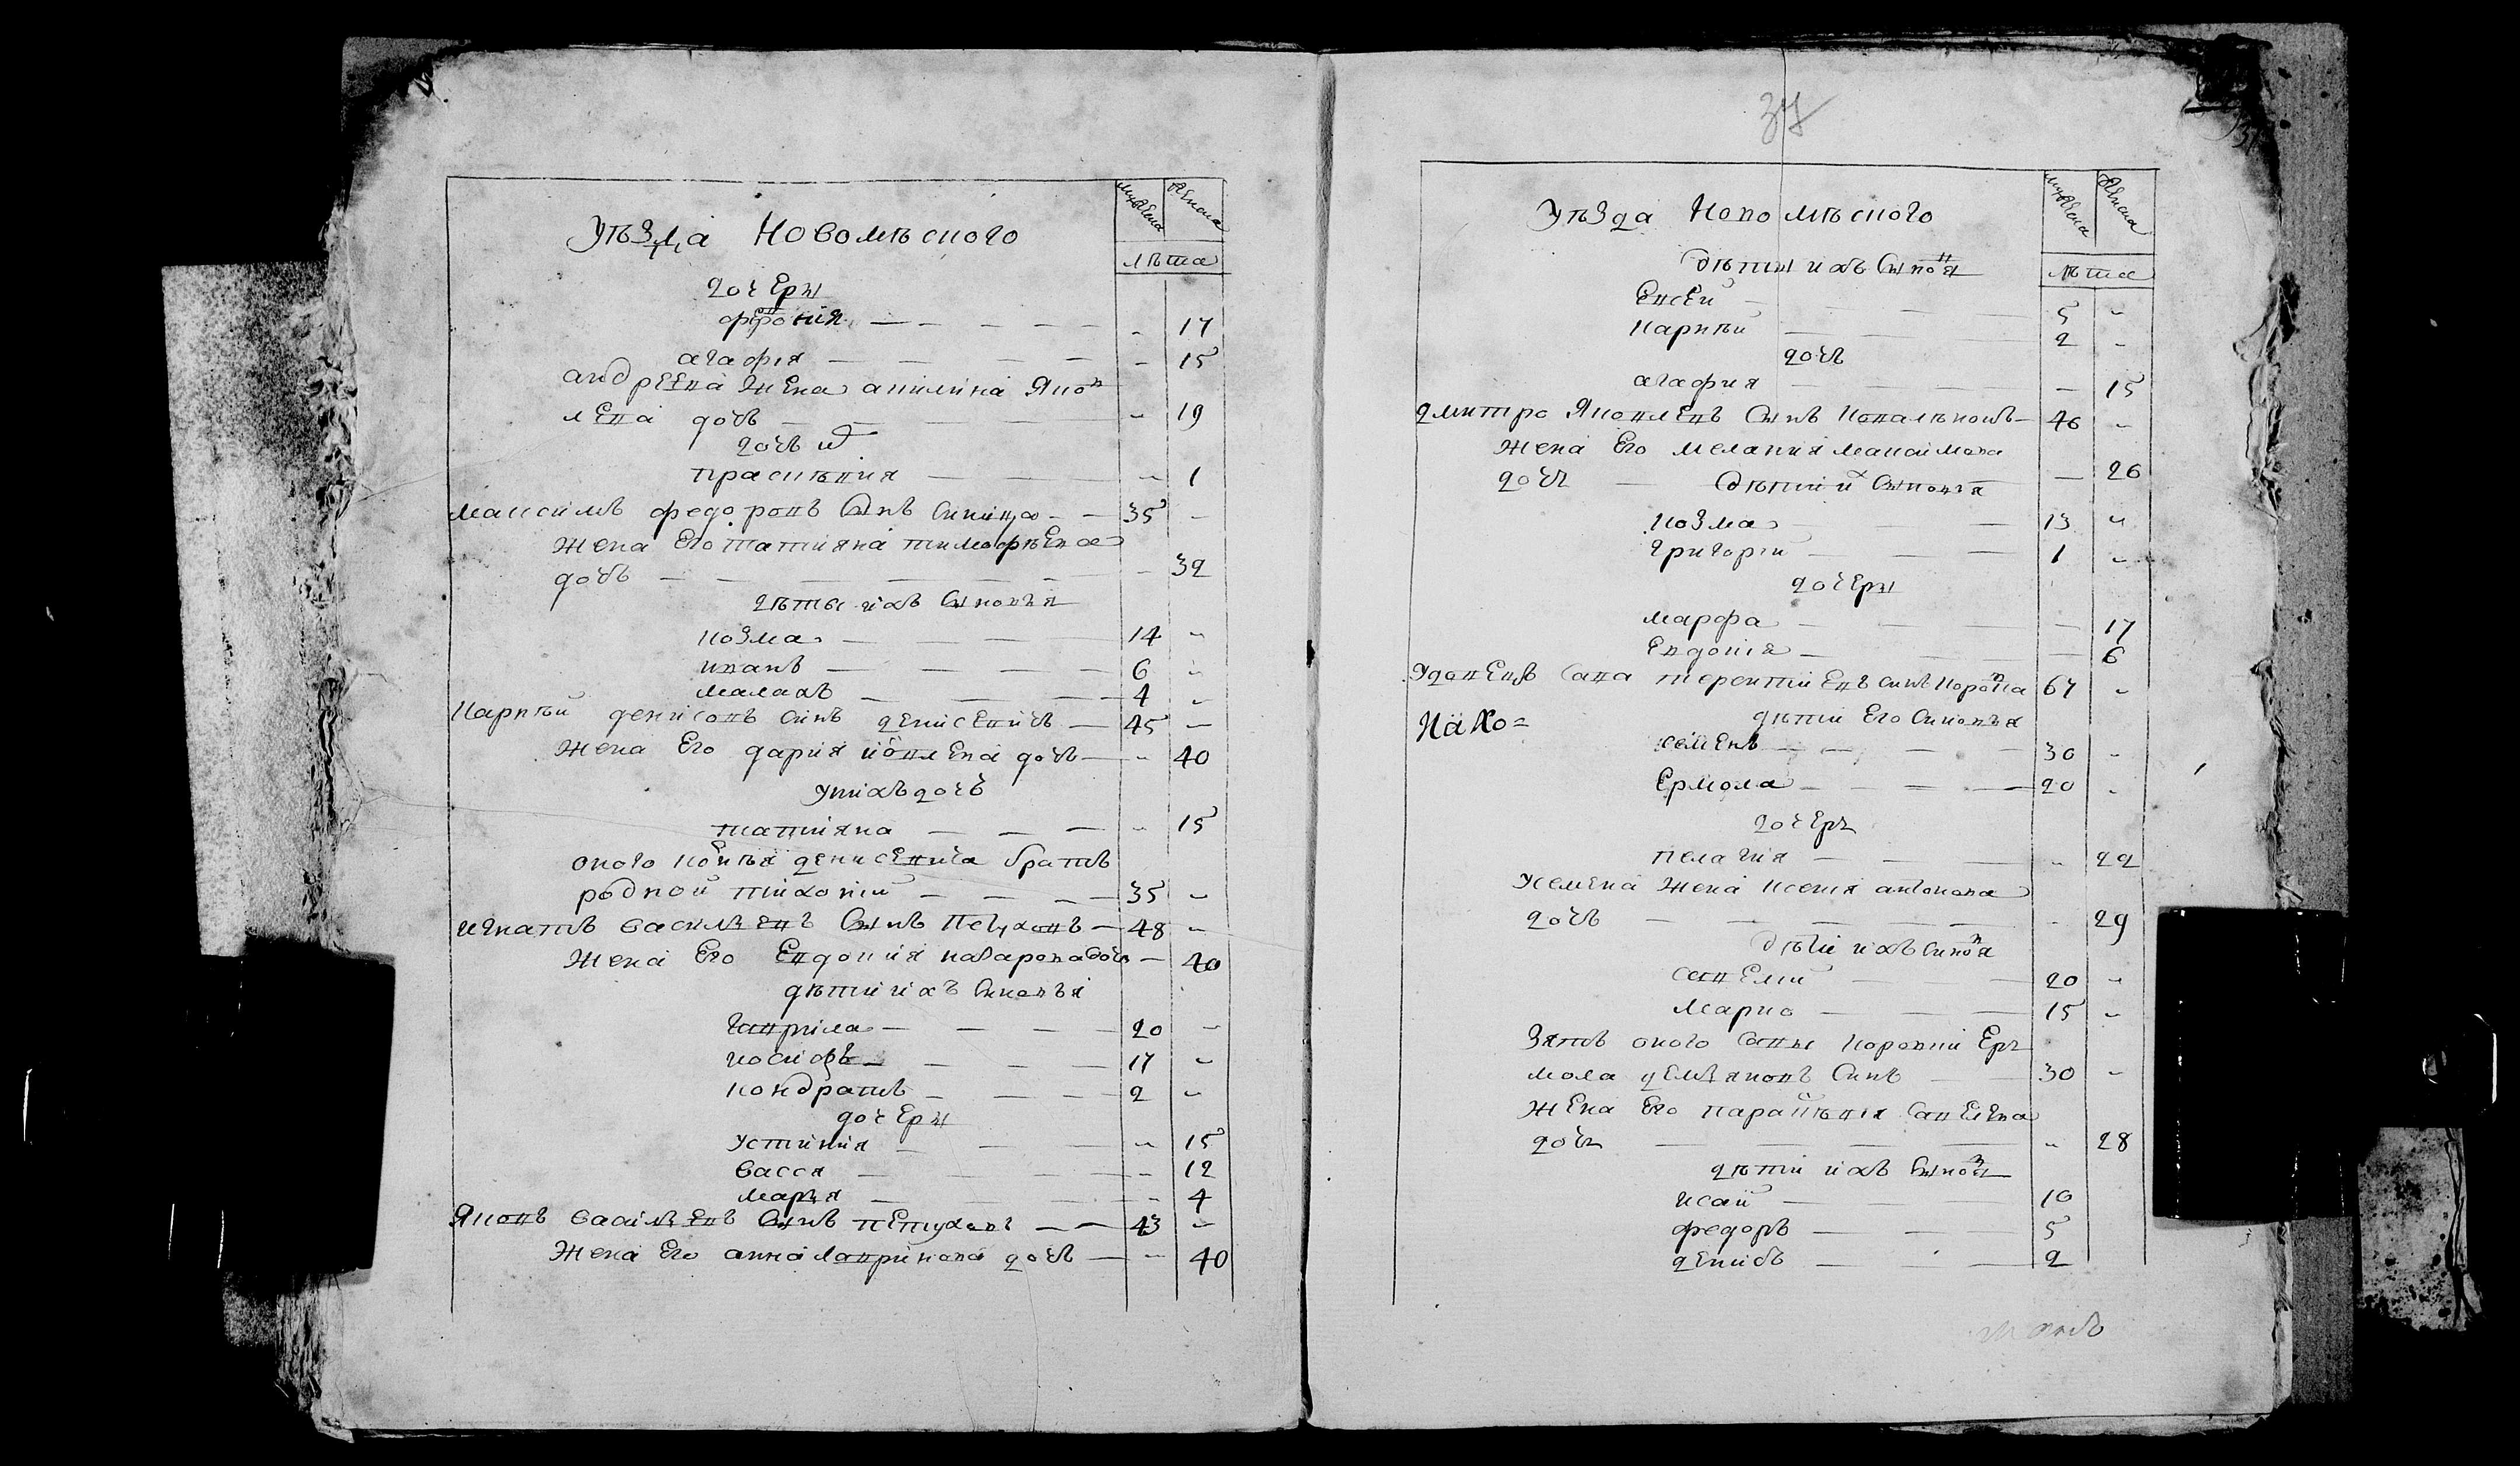 Уѣзда Новомѣского
мужеска женска
лѣта
дочеры
офронія — — — — — - 17
агафія — — — — - 15
андреева жена акилина Яков
лева дочь — — — — - 19
дочь их
прасковия — — — - 1
максимъ федоровъ сынъ синица - — 35 -
жена его татияна тимофѣева
дочь — — — — — — - 32
дѣты ихъ сыновья
козма — — — 14 -
иванъ — — — — 6 -
малахъ — — — 4 -
Карнѣй денисовъ синъ денисевичъ — 45 —
жена Его дария иовлева дочь — - 40
у нихъ дочь
татияна — — — - 15
оного корнѣя денисевича братъ
родной тихоній — — — — 35 -
игнатъ василѣевъ сынъ петуховъ — 48 -
жена Его Евдокия назарова дочь — - 40
дѣти ихъ синовья
гаврила — — — — 20 -
иосифъ — — — — 17 -
кондратъ — — — — 2 -
дочеры
устиния — — — - 15
васся — — — - 12
марья — — — - 4
Яковъ василѣевъ сынъ пѣтуховъ — — 43 -
жена Его анна лавринова дочь — - 40
37
Уѣзда Новомѣского
мужеска женска
лѣта
дѣти ихъ сыновя
Евсей — — — 5 -
карнѣй — — — 2 -
дочь
агафия — — — - 15
дмитро Яковлевъ сынъ ковалковъ — 46 -
жена Его мелания максимова
дочь — — 26
дѣти их сыновья
козма — — — 13 -
григорій — — — 1 -
дочеры
марфа — — — 17
Евдокія — — — 6
удовецъ сава терентиевъ синъ 67 -
дѣти Его синовья
Нахо=
семенъ — — — 30 -
Ермола — — — 20 -
дочерь
пелагия — — — - 22
у семена жена ксения антонова
дочь — — — — - 29
дѣти ихъ синовя
савелий — — — 20 -
марко — — — 15 -
зять оного савы Ер
мола демяновъ синъ — 30 -
жена Его савелева
дочь — — — — - 28
дѣти ихъ сыновя
исай — — — 10
федоръ — — — 5
денисъ — — — 2